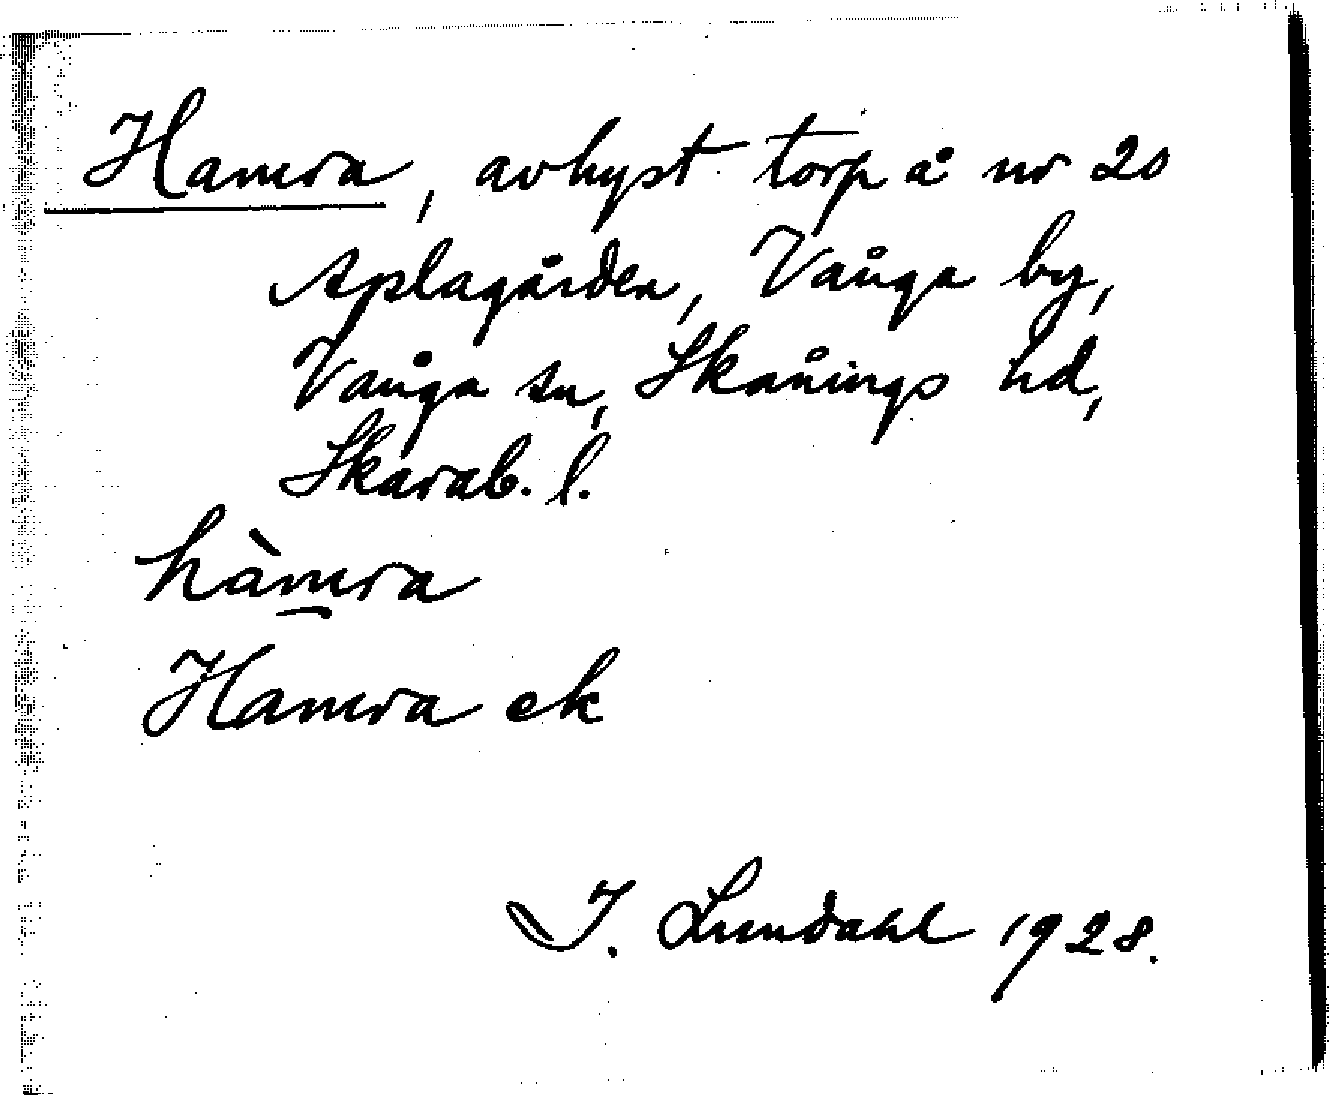 Hamra, avhyst torp å nr 20
Aplagården, Vånga by,
Vånga sn, Skånings hd,
Skarab. l.
hàm̲ra
Hamra ek
I. Lundahl 1928.